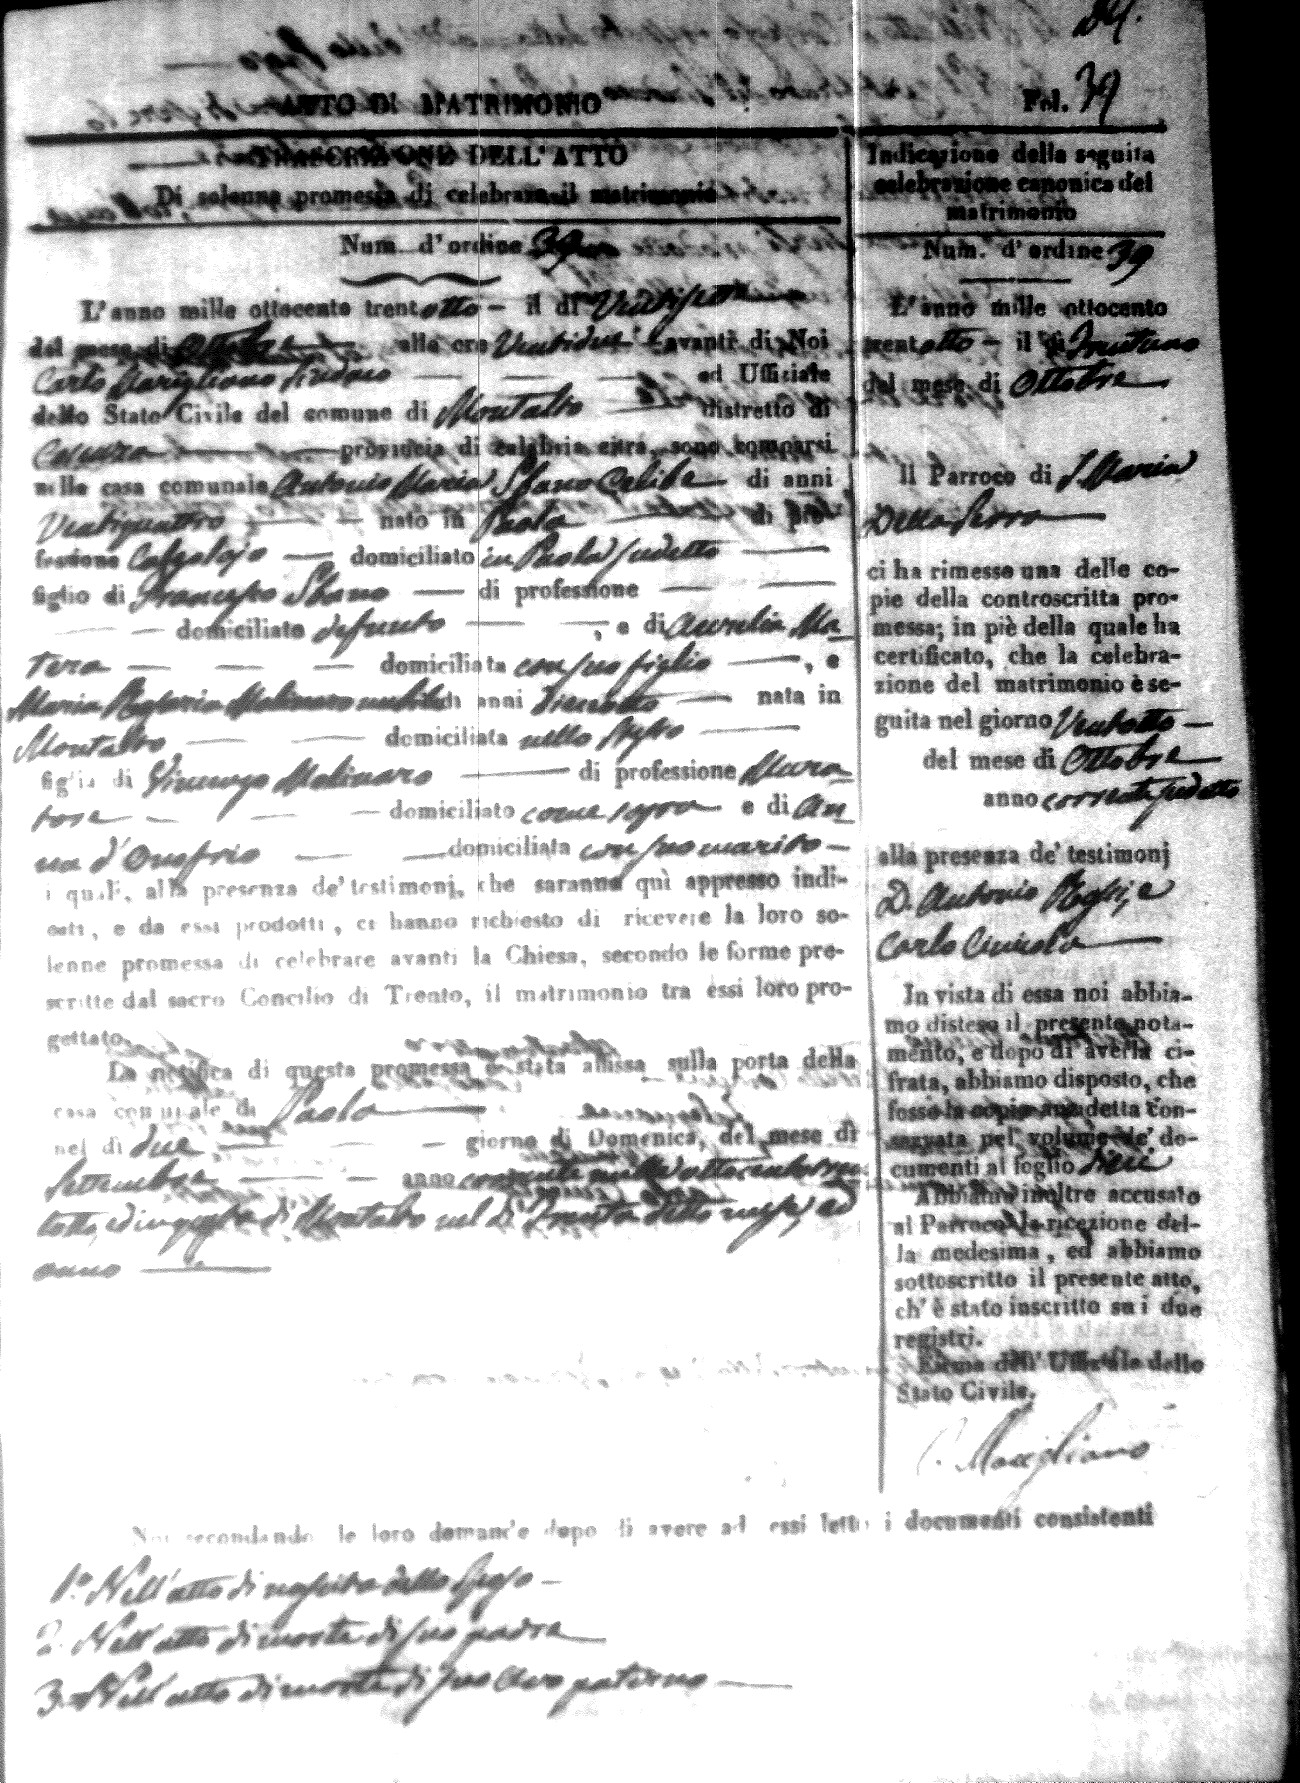 39.
ATTO DI MATRIMONIO
Fol. 39
TRASCRIZIONE DELL'ATTO
Di solenne promessa di celebrare il matrimonio
Num. d'ordine 39
L'anno mille ottocento trentotto — il dì Ventisette
del mese di Ottobre — alle ore Ventidue avanti di Noi
Carlo Marigliano Sindaco — — — ed Uffiziale
dello Stato Civile del comune di Montalto — distretto di
Cosenza — provincia di calabria citra, sono comparsi
nella casa comunale Antonio Maria Sbano Celibe — di anni
Ventiquattro — — nato in Paola — di pro-
fessione Calzolajo — domiciliato in Paola sudetto —
figlio di Francesco Sbano — di professione — —
— — domiciliato defunto — — , e di Aurelia Ma
tera — — — domiciliata con suo figlio — , e
Maria Rosaria Molinaro nubile di anni Diciotto — nata in
Montalto — — domiciliata nello stesso —
figlia di Vincenzo Molinaro — di professione Mura
tore — — — domiciliato come sopra — e di An
na d'Onofrio — — domiciliata con suo marito —
i quali, alla presenza de' testimonj, che saranno quì appresso indi-
cati, e da essi prodotti, ci hanno richiesto di ricevere la loro so-
lenne promessa di celebrare avanti la Chiesa, secondo le forme pre-
scritte dal sacro Concilio di Trento, il matrimonio tra essi loro pro-
gettato.
La notifica di questa promessa è stata affissa sulla porta della
casa comunale di Paola —
nel dì due — — — giorno di Domenica, del mese di
Settembre — — anno corrente mille ottocento tren
totto, ed in questa di Montalto nel dì Trenta detto mese, ed
anno —
Indicazione della seguita
celebrazione canonica del
matrimonio
Num. d'ordine 39
L'anno mille ottocento
trentotto — il dì Trentuno
del mese di Ottobre
Il Parroco di S. Maria
Della Serra —
ci ha rimesso una delle co-
pie della controscritta pro-
messa; in piè della quale ha
certificato, che la celebra-
zione del matrimonio è se-
guita nel giorno Ventotto —
del mese di Ottobre
anno corrente sudetto
alla presenza de' testimonj
D. Antonio
Carlo
In vista di essa noi abbia-
mo disteso il presente nota-
mento, e dopo di averla ci-
frata, abbiamo disposto, che
fosse la copia anzidetta con-
servata pel volume de' do-
cumenti al foglio Dieci
Abbiamo inoltre accusato
al Parroco la ricezione del-
la medesima, ed abbiamo
sottoscritto il presente atto,
ch' è stato inscritto su i due
registri.
Firma dell' Uffiziale dello
Stato Civile.
C. Marigliano
Noi secondando le loro domande dopo di avere ad essi letto i documenti consistenti
1.° Nell'atto di nascita dello sposo —
2. Nell'atto di morte di suo padre
3. Nell'atto di morte di suo avo paterno —